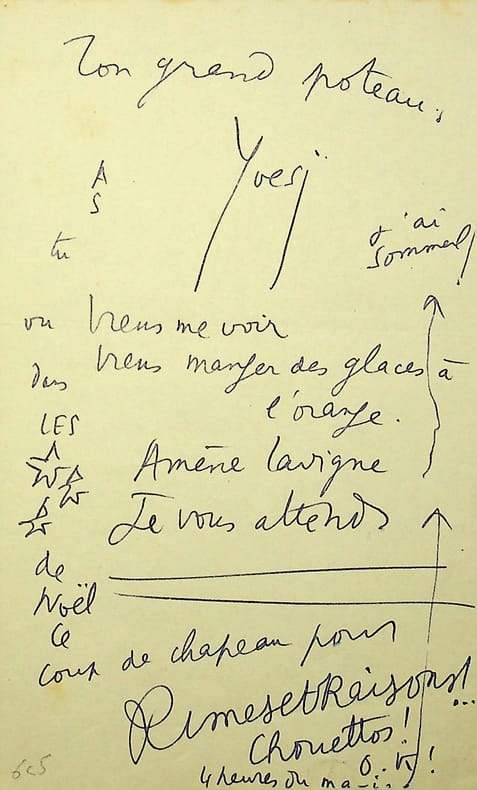 Ton grand poteau.
Yves
j'ai
sommeil!
viens me voir
viens manger des glaces à
l'orange.
Amène lavigne
Je vous attends
As
tu
vu
dans
LES
de
Noël
ce
coup de chapeau pour
Rimes et Raisons!...
Chouettos!
O.K!
4 heures du ma-i-
605